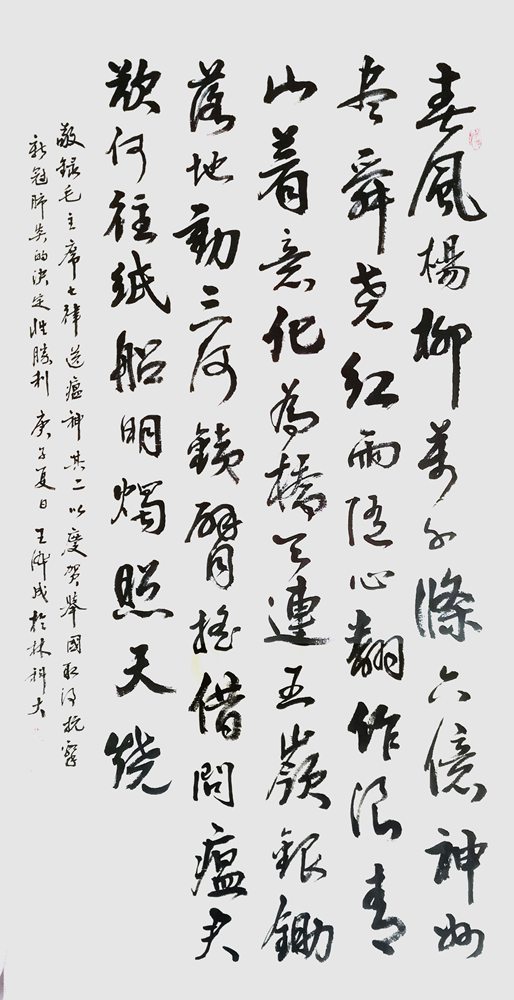 春風楊柳萬千條六億神州
尽舜堯紅雨随心翻作浪青
山着意化為橋天連五嶺銀鋤
落地動三河鐵臂搖借問瘟君
欲何往紙船明燭照天燒
敬録毛主席七律送瘟神其二以慶賀舉國取得抗擊
新冠肺炎的決定性勝利 庚子夏日 王成於林科大